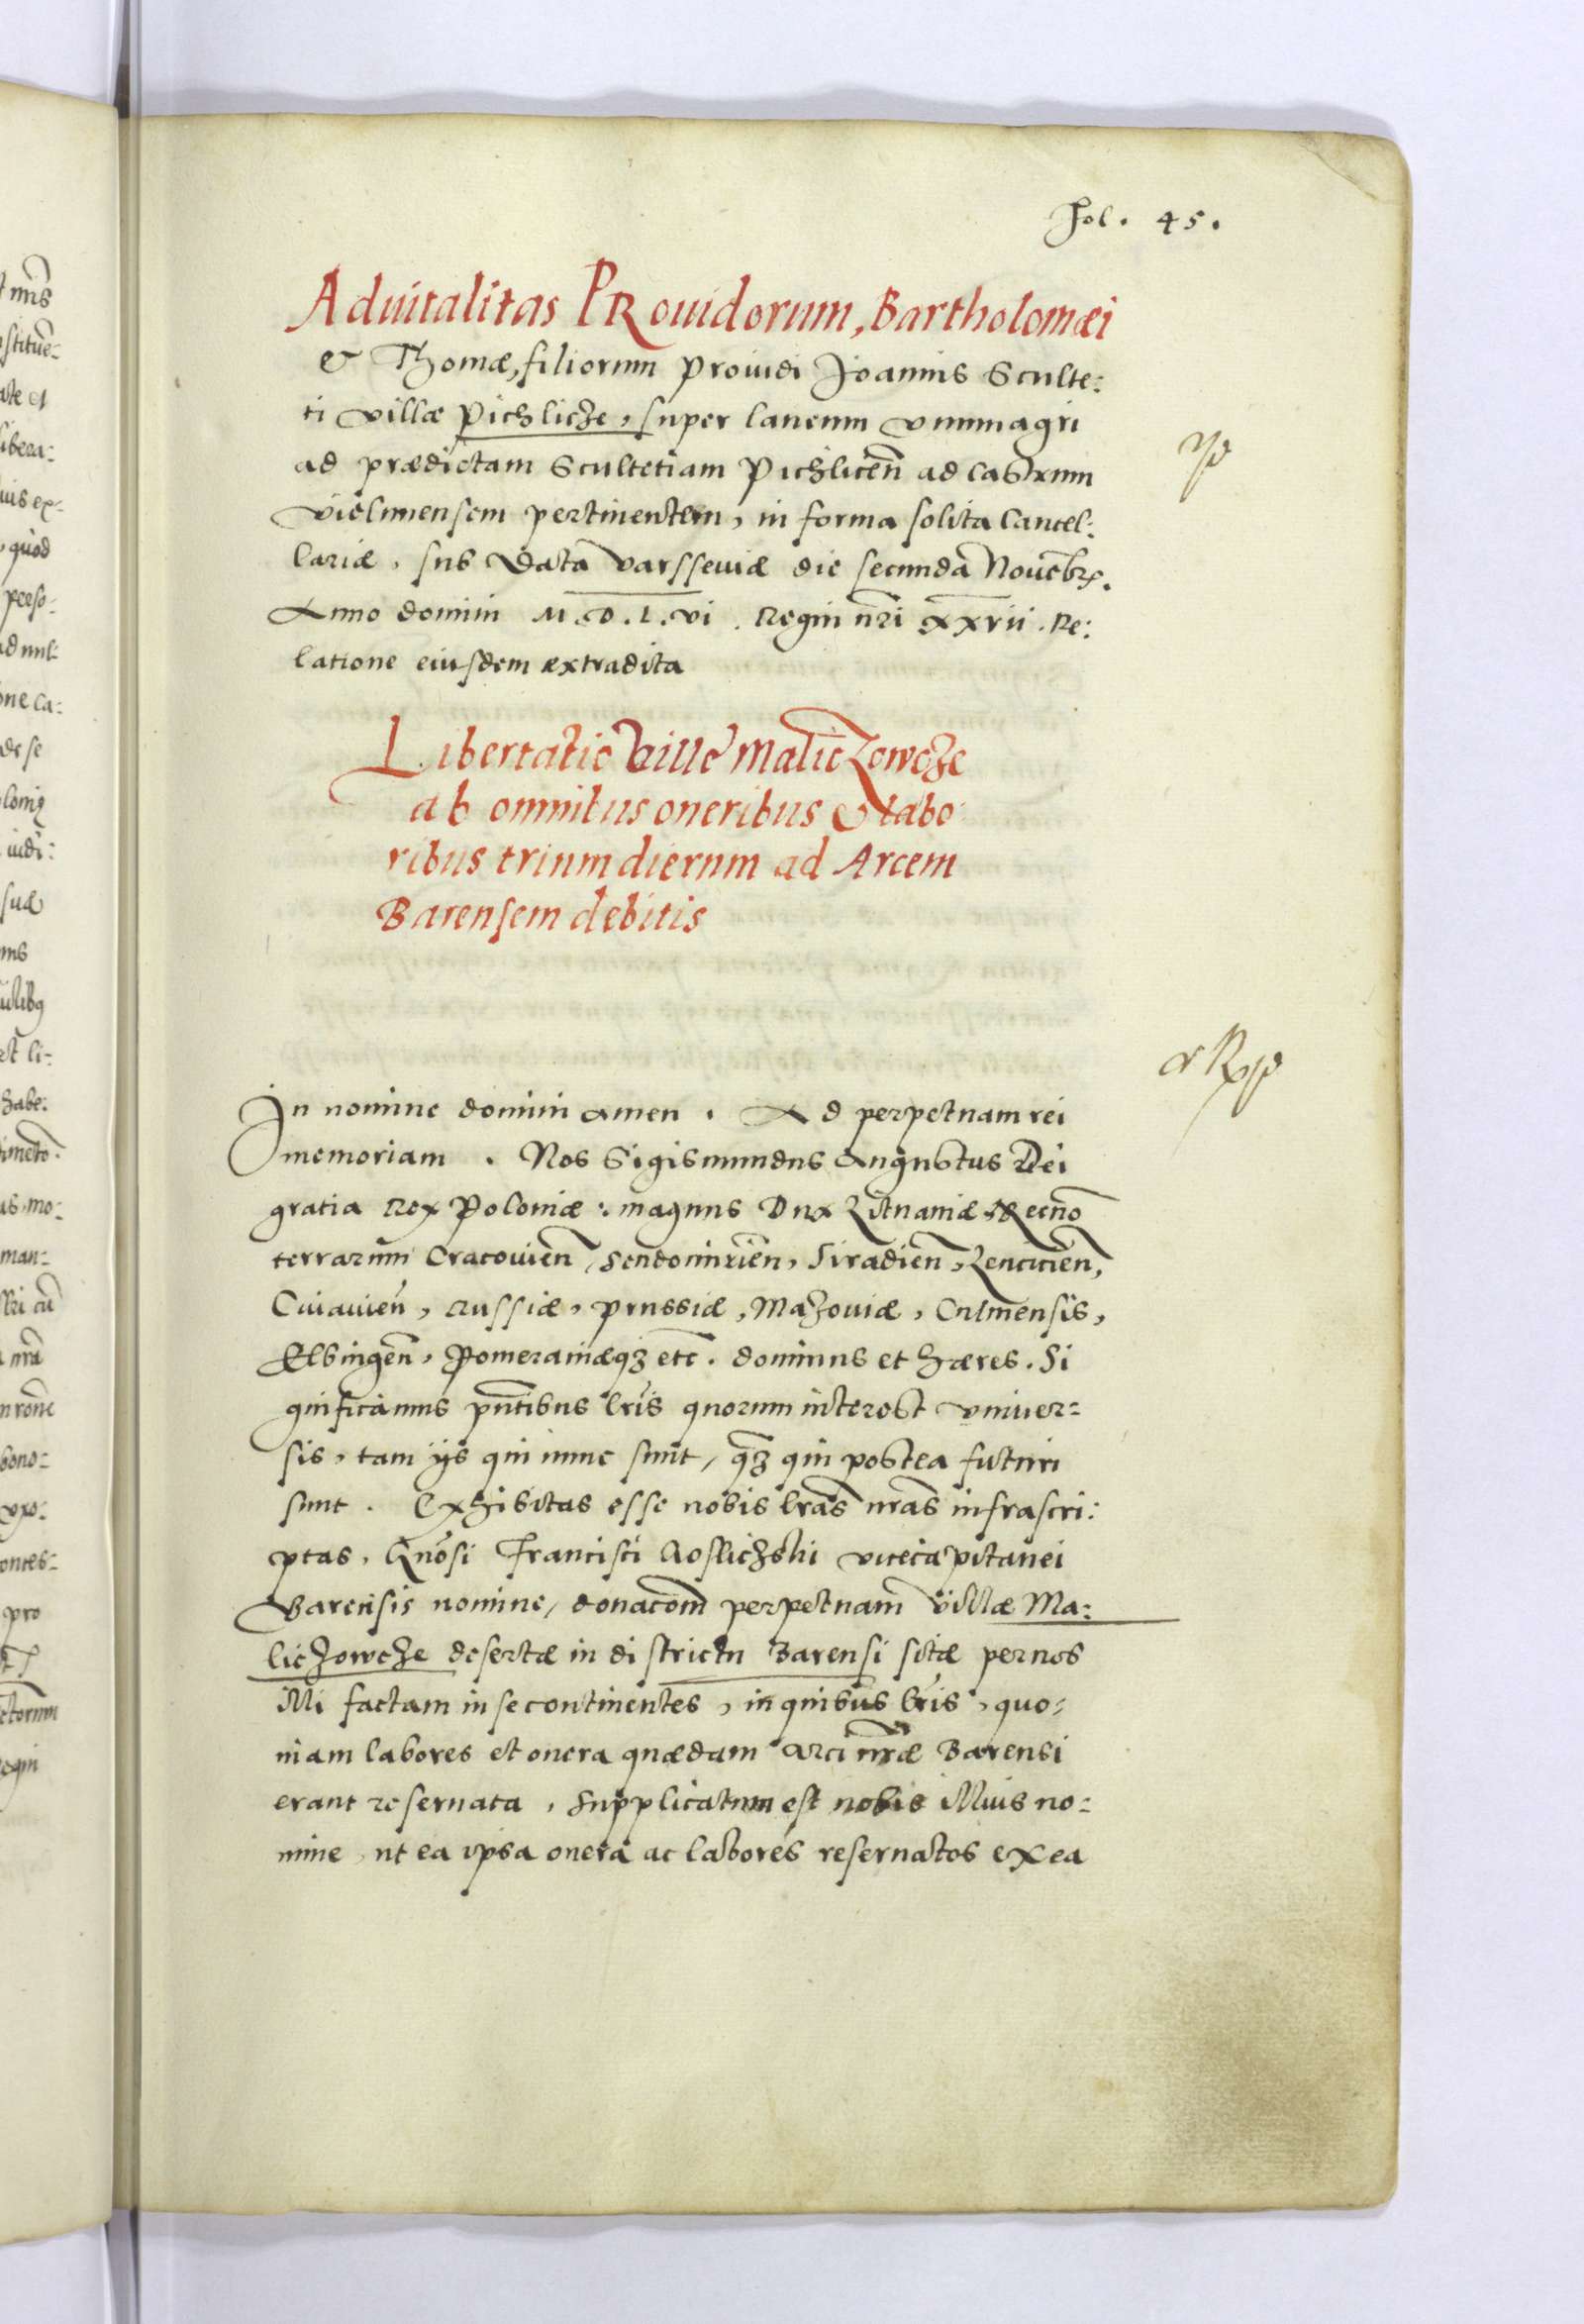 Fol. 45.
Aduitalitas PRouidorum, Bartholomæi
& Thomæ, filiorum Prouidi Joannis Sculte:
ti villæ Pichlicze, super laneum vnum agri
ad prædictam Scultetiam Pichlicen̄ ad Castrum
Vielunensem pertinentem, in forma solita Cancel:
lariæ, sub Data Varsseuiæ die secunda Nouēbr.
Anno domini M.D.L.vi. Regni nr̄i xxvii. Re:
latione eiusdem extradita
Libertatio Villę Maliczowcze
ab omnibus oneribus & labo
ribus trium dierum ad Arcem
Barensem debitis
In nomine domini amen. Ad perpetuam rei
memoriam. Nos Sigismundus Augustus Dei
gratia Rex Poloniæ: magnus Dux Litūaniæ, necno
terrarum Cracouien̄, Sendomirien̄, Siradien̄, Lencicien̄,
Cuiauien̄, Russiæ, Prussiæ, Mazouiæ, Culmensis,
Elbingen̄, Pomeraniæqꝫ etc̄. dominus et hæres. Si
gnificamus pn̄tibus lr̄is quorum interest vniuer=
sis, tam ijs qui nunc sunt, qꝫ qui postea futuri
sunt. Exhibitas esse nobis lr̄as nr̄as infrascri:
ptas, Gn̄osi Francisci vicecapitanei
Barensis nomine, donacōm perpetuam villæ Ma:
liczowcze desertæ in districtu Barensi sitæ per nos
illi factam in se continentes, in quibus lr̄is, quo=
niam labores et onera quædam arci nr̄æ Barensi
erant reseruata, supplicatum est nobis illius no=
mine, ut ea ipsa onera ac labores reseruatos ex ea